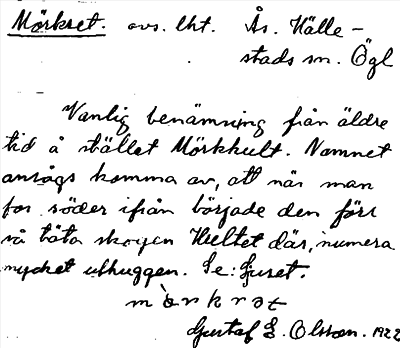 Mörkret. avs. lht. Ås. Hälle-
stads sn. Ögl
Vanlig benämning från äldre
tid å stället Mörkhult. Namnet
ansågs komma av, att när man
for söder ifrån började den förr
så täta skogen Hultet där, numera
mycket uthuggen. Se: Ljuset.
mörkrət
Gustaf E. Olsson. 1922